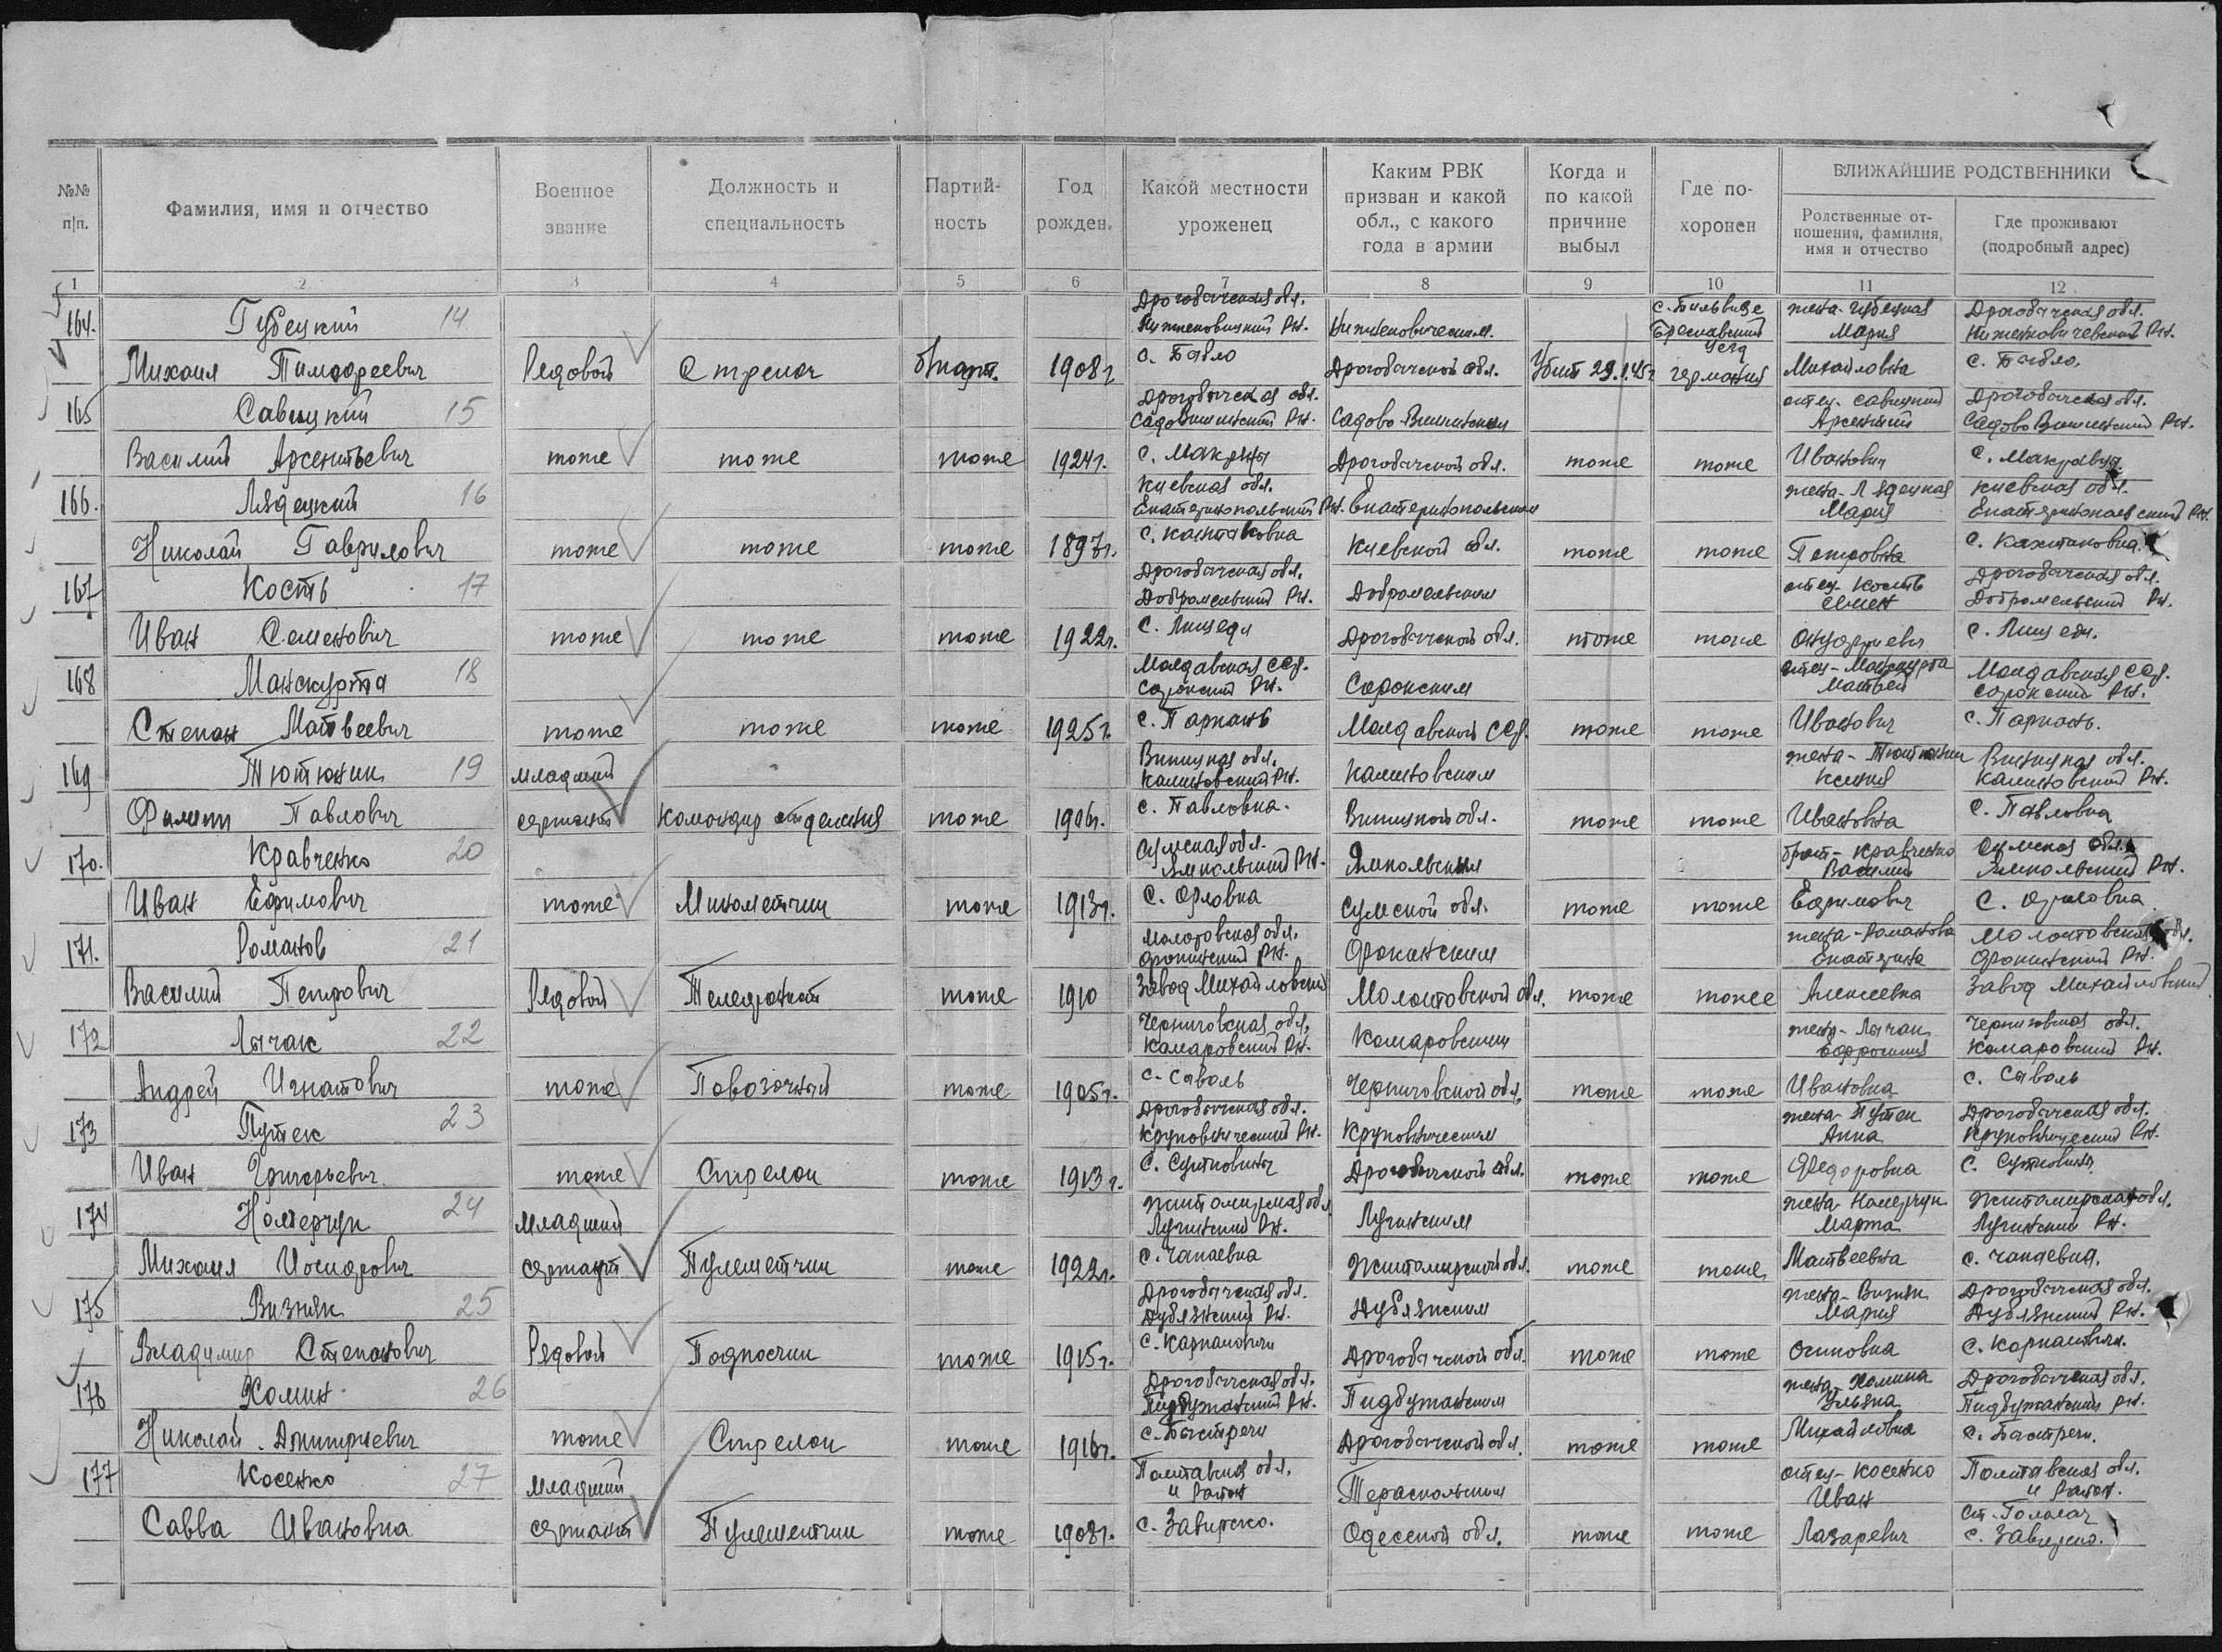 №№ п/п.
Фамилия, имя и отчество
Военное звание
Должность и специальность
Партий-
ность
Год рожден.
Какой местности уроженец
Каким РВК призван и какой обл., с какого года в армии
Когда и по какой причине выбыл
Где по-
хоронен
БЛИЖАЙШИЕ РОДСТВЕННИКИ
Родственные от-
ношения, фамилия, имя и отчество
Где проживают (подробный адрес)
1 2 3 4 5 6 7 8 9 10 11 12
164. Губецкий 14 Дрогобычская обл. Нижанковичским. с. Бильвизе жена-Губецкая Дрогобычская обл.
Бреславский Мария
Михаил Тимофеевич Рядовой Стрелок б/парт. 1908г с. Дрогобычской обл. Убит 29.1.45г уезд Германия Михайловна с.
165 Савицкий 15 Дрогобычская обл. Садово-Вишнским отец-Савицкий Дрогобычская обл.
Садовишнский Рн. Арсентий Садово Вишнский Рн.
Василий Арсентьевич тоже тоже тоже 1924г. с. Дрогобычской обл. тоже тоже Иванович с.
166. Лядецкий 16 Киевская обл. Екатеринопольским жена-Лядецкая Киевская обл.
Екатеринопольский Рн. Мария Екатеринопольский Рн.
Николай Гаврилович тоже тоже тоже 1897г. с. Киевской обл. тоже тоже Петровна с.
167 Кость 17 Дрогобычская обл. Добромельским отец-Кость Дрогобычская обл.
Добромельский Рн. Семен Добромельский Рн.
Иван Семенович тоже тоже тоже 1922г. с. Дрогобычской обл. тоже тоже с.
168 Манскурта 18 Молдавская ССР. Сорокским отец-Манскурта Молдавская ССР.
Сорокский Рн. Матвей Сорокский Рн.
Степан Матвеевич тоже тоже тоже 1925г. с. Паркань Молдавской ССР. тоже тоже Иванович с. Паркань.
169 Тютюник 19 младший Виницкая обл. Калиновским жена-Тютюник Виницкая обл.
Калиновский Рн. Ксения Калиновский Рн.
Филипп Павлович сержант Командир отделения тоже 1906г. с. Павловка. Виницкой обл. тоже тоже Ивановна с. Павловка
170. Кравченко 20 Сумская обл. Ямпольским брат-Кравченко Сумская обл.
Ямпольский Рн. Василий Ямпольский Рн.
Иван Ефимович тоже Минометчик тоже 1913г. с. Орловка Сумской обл. тоже тоже Ефимович с. Орловка
171. Романов 21 Молотовская обл. Фокинским жена-Романова Молотовская обл.
Фокинский Рн. Екатерина Фокинский Рн.
Василий Петрович Рядовой Телефонист тоже 1910 Завод Михайловский Молотовской обл. тоже тоже Алексеевна Завод Михайловский
172 Лычак 22 Черниговская обл. Комаровским жена-Лычак Черниговская обл.
Комаровский Рн. Комаровский Рн.
Андрей Игнатович тоже Повозочный тоже 1905г. с. Саволь Черниговской обл. тоже тоже Ивановна с. Саволь
173 Путек 23 Дрогобычская обл. Круковничским жена-Путек Дрогобычская обл.
Круковнический Рн. Анна Круковнический Рн.
Иван Григорьевич тоже Стрелок тоже 1913г. с. Дрогобычской обл. тоже тоже Федоровна с.
174 24 младший Житомирская обл. Лугинским жена Житомирская обл.
Лугинский Рн. Марта Лугинский Рн.
Михаил Иосифович сержант Пулеметчик тоже 1922г. с. Чапаевка Житомирской обл. тоже тоже Матвеевна с. Чапаевка.
175 Визняк 25 Дрогобычская обл. Дублянским жена-Визняк Дрогобычская обл.
Дублянский Рн. Мария Дублянский Рн.
Владимир Степанович Рядовой Подносчик тоже 1915г. с. Дрогобычской обл. тоже тоже Осиповна с.
176 Хомин 26 Дрогобычская обл. Пидбужанским жена-Хомина Дрогобычская обл.
Пидбужанский Рн. Ульяна Пидбужанский Рн.
Николай Дмитриевич тоже Стрелок тоже 1916г. с. Быстрени Дрогобычской обл. тоже тоже Михайловна с. Быстрени.
177 Косенко 27 младший Полтавская обл. Тераспольским отец-Косенко Полтавская обл.
и район Иван и район.
Савва Ивановна сержант Пулеметчик тоже 1908г. с. Одесской обл. тоже тоже Лазаревич ст. с.